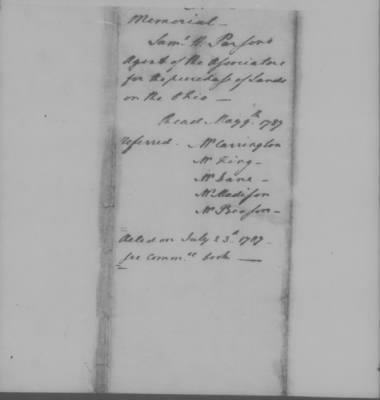 Memorial —
Saml H. Parsons
Agent of the Associators
for the purchase of Lands
on the Ohio —
Read May 9th 1787
referred. Mr Carrington
Mr King —
Mr Dane —
Mr Madison
Mr Benson —
Acted on July 23d 1787 —
See Commee book —